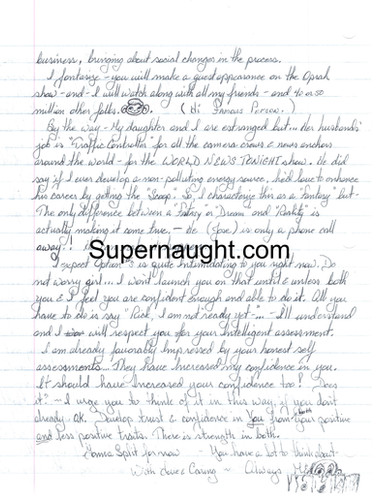 business, bringing about social changes in the process.
I fantasize - you will make a guest appearance on the Oprah
show - and - I will watch along with all my friends - and 10 or 50
million other folks. (Hi Famous Person.)
By the way - My daughter and I are estranged but... Her husbands'
job is "Traffic Controller" for all the camera crews & news anchors
around the world - for the WORLD NEWS TONIGHT show. He did
say if I ever develop a non-polluting energy source, he'd love to enhance
his career by getting the "scoop". So, I characterize this as a "Fantasy" but -
The only difference between a "Fantasy or Dream" and "Reality" is
actually making it come true, - he (Joe) is only a phone call
away!
Supernaught.com
I expect Option is quite intimidating to you right now. Do
not worry girl... I won't launch you on that until & unless both
you & I feel you are confident enough and able to do it. All you
have to do is say "Rick, I am not ready yet"... - I'll understand
and I will respect you for your intelligent assessment.
I am already favorably impressed by your honest self
assessments... They have increased my confidence in you.
It should have increased your confidence too! Does
it? - I urge you to think of it in this way, if you don't
already - OK. Develop trust & confidence in You from your both positive
and less positive traits. There is strength in both.
Gonna Split for now - You have a lot to think about -
With Love & Caring ~ Always